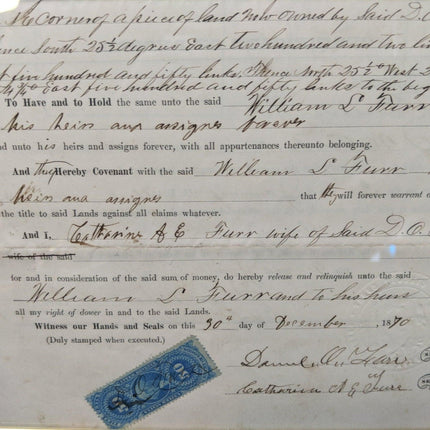 the corner of a piece of land now owned by Said D. O.
thence South 25½ degrees East two hundred and two lin
five hundred and fifty links, thence North 25½° West 2
East five hundred and fifty links to the beg
To Have and to Hold the same unto the said William L Furr
his heirs and assignes forever
and unto his heirs and assigns forever, with all appurtenances thereunto belonging.
And they Hereby Covenant with the said William L Furr
heirs and assignes that they will forever warrant
the title to said Lands against all claims whatever.
And I, Catharine A E Furr wife of Said D. O.
wife of the said
for and in consideration of the said sum of money, do hereby release and relinquish unto the said
William L Furr and to his heirs
all my right of dower in and to the said Lands.
Witness our Hands and Seals on this 30th day of December 1870
(Duly stamped when executed.)
Daniel O. Furr
Catharine A E Furr
50